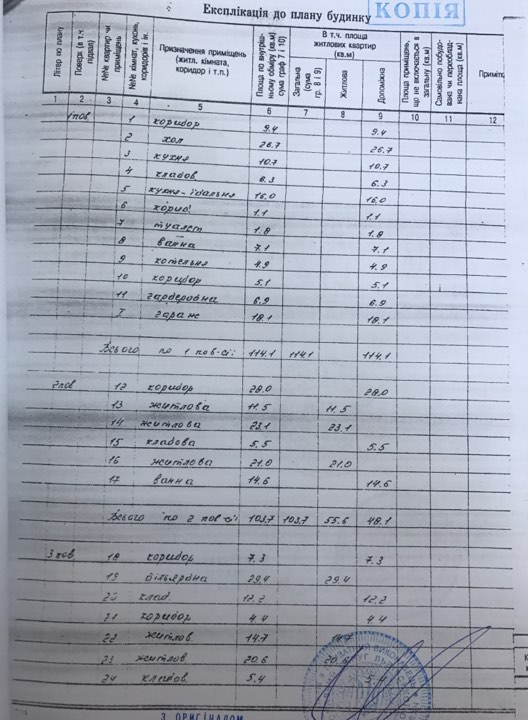 Експлікація до плану будинку
КОПІЯ
Літер по плану
Поверх (в т.ч. підвал)
№№ квартир чи приміщень
№№ кімнат, кухонь, коридорів і ін.
Призначення приміщень (житл. кімната, коридор і т.п.)
Площа по внутрішньому обміру (кв.м) сума граф 7 і 10)
В т.ч. площа житлових квартир (кв.м)
Загальна (сума гр. 8 і 9)
Житлова
Допоміжна
Площа приміщень, що не включається в загальну (кв.м)
Самовільно побудована чи переобладнана площа (кв.м)
Приміт
2 3 4 5 6 7 8 9 10 11 12
1 пов. 1 коридор 9.4 9.4
2 хол 26.7 26.7
3 кухня 10.7 10.7
4 кладов 6.3 6.3
5 кухня-їдальня 16.0 16.0
6 корид 1.1 1.1
7 туалет 1.8 1.8
8 ванна 7.1 7.1
9 котельня 4.9 4.9
10 коридор 5.1 5.1
11 гардеробна 6.9 6.9
I гараж 18.1 18.1
Всього по 1 пов-сі: 114.1 114.1 114.1
2 пов 12 коридор 28.0 28.0
13 житлова 11.5 11.5
14 житлова 23.1 23.1
15 кладова 5.5 5.5
16 житлова 21.0 21.0
17 ванна 14.6 14.6
Всього по 2 пов-сі: 103.7 103.7 55.6 48.1
3 пов. 18 коридор 7.3 7.3
19 більярдна 29.4 29.4
20 клад. 12.2 12.2
21 коридор 4.4 4.4
22 житлов 14.7 14.7
23 житлов 20.6 20.6
24 кладов 5.4 5.4
З ОРИГІНАЛОМ